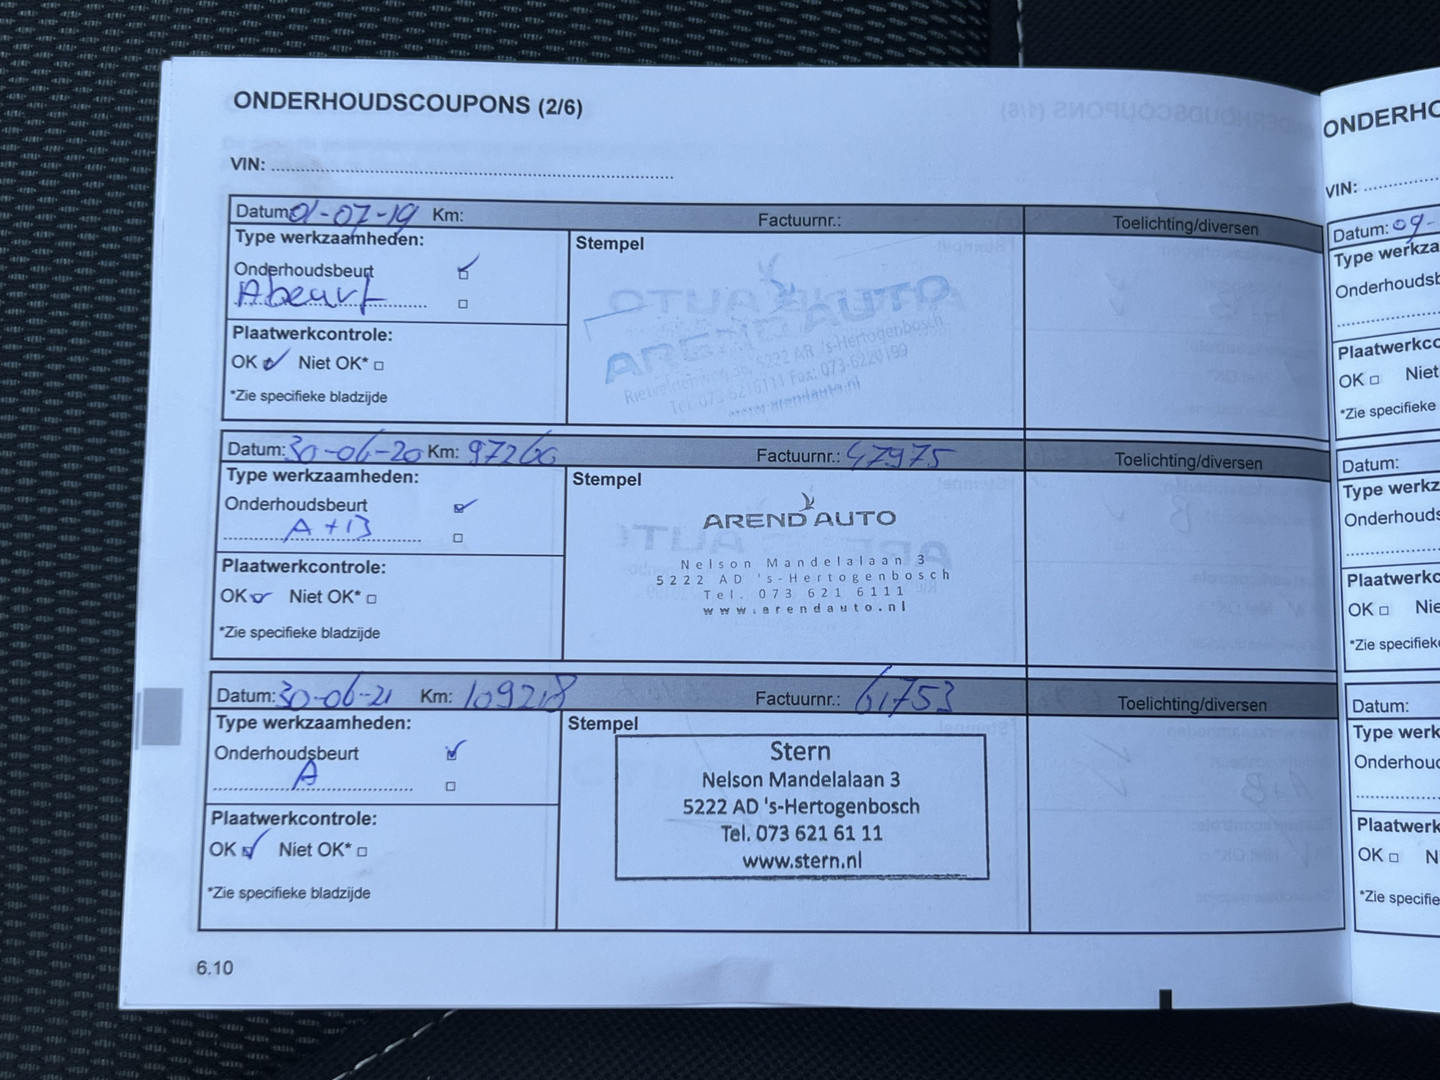 ONDERHOUDSCOUPONS (2/6)
VIN:
Datum: 01-07-19 Km: Factuurnr.: Toelichting/diversen
Type werkzaamheden:
Stempel
Onderhoudsbeurt
Abeurt
Plaatwerkcontrole:
OK Niet OK*
*Zie specifieke bladzijde
AREND AUTO
5222 AR 's-Hertogenbosch
Tel. 073-6216111 Fax: 073-6220199
www.arendauto.nl
Datum: 30-06-20 Km: 97260 Factuurnr.: 47975 Toelichting/diversen
Type werkzaamheden:
Stempel
Onderhoudsbeurt
A+B
Plaatwerkcontrole:
OK Niet OK*
*Zie specifieke bladzijde
AREND AUTO
Nelson Mandelalaan 3
5222 AD 's-Hertogenbosch
Tel. 073 621 6111
www.arendauto.nl
Datum: 30-06-21 Km: 109218 Factuurnr.: 61753 Toelichting/diversen
Type werkzaamheden:
Stempel
Onderhoudsbeurt
A
Plaatwerkcontrole:
OK Niet OK*
*Zie specifieke bladzijde
Stern
Nelson Mandelalaan 3
5222 AD 's-Hertogenbosch
Tel. 073 621 61 11
www.stern.nl
6.10
ONDERHO
VIN:
Datum: 09-
Type werkza
Onderhoudsb
Plaatwerkco
OK Niet
*Zie specifieke
Datum:
Type werkz
Onderhouds
Plaatwerkc
OK Nie
*Zie specifiek
Datum:
Type werk
Onderhoud
Plaatwerk
OK N
*Zie specifie